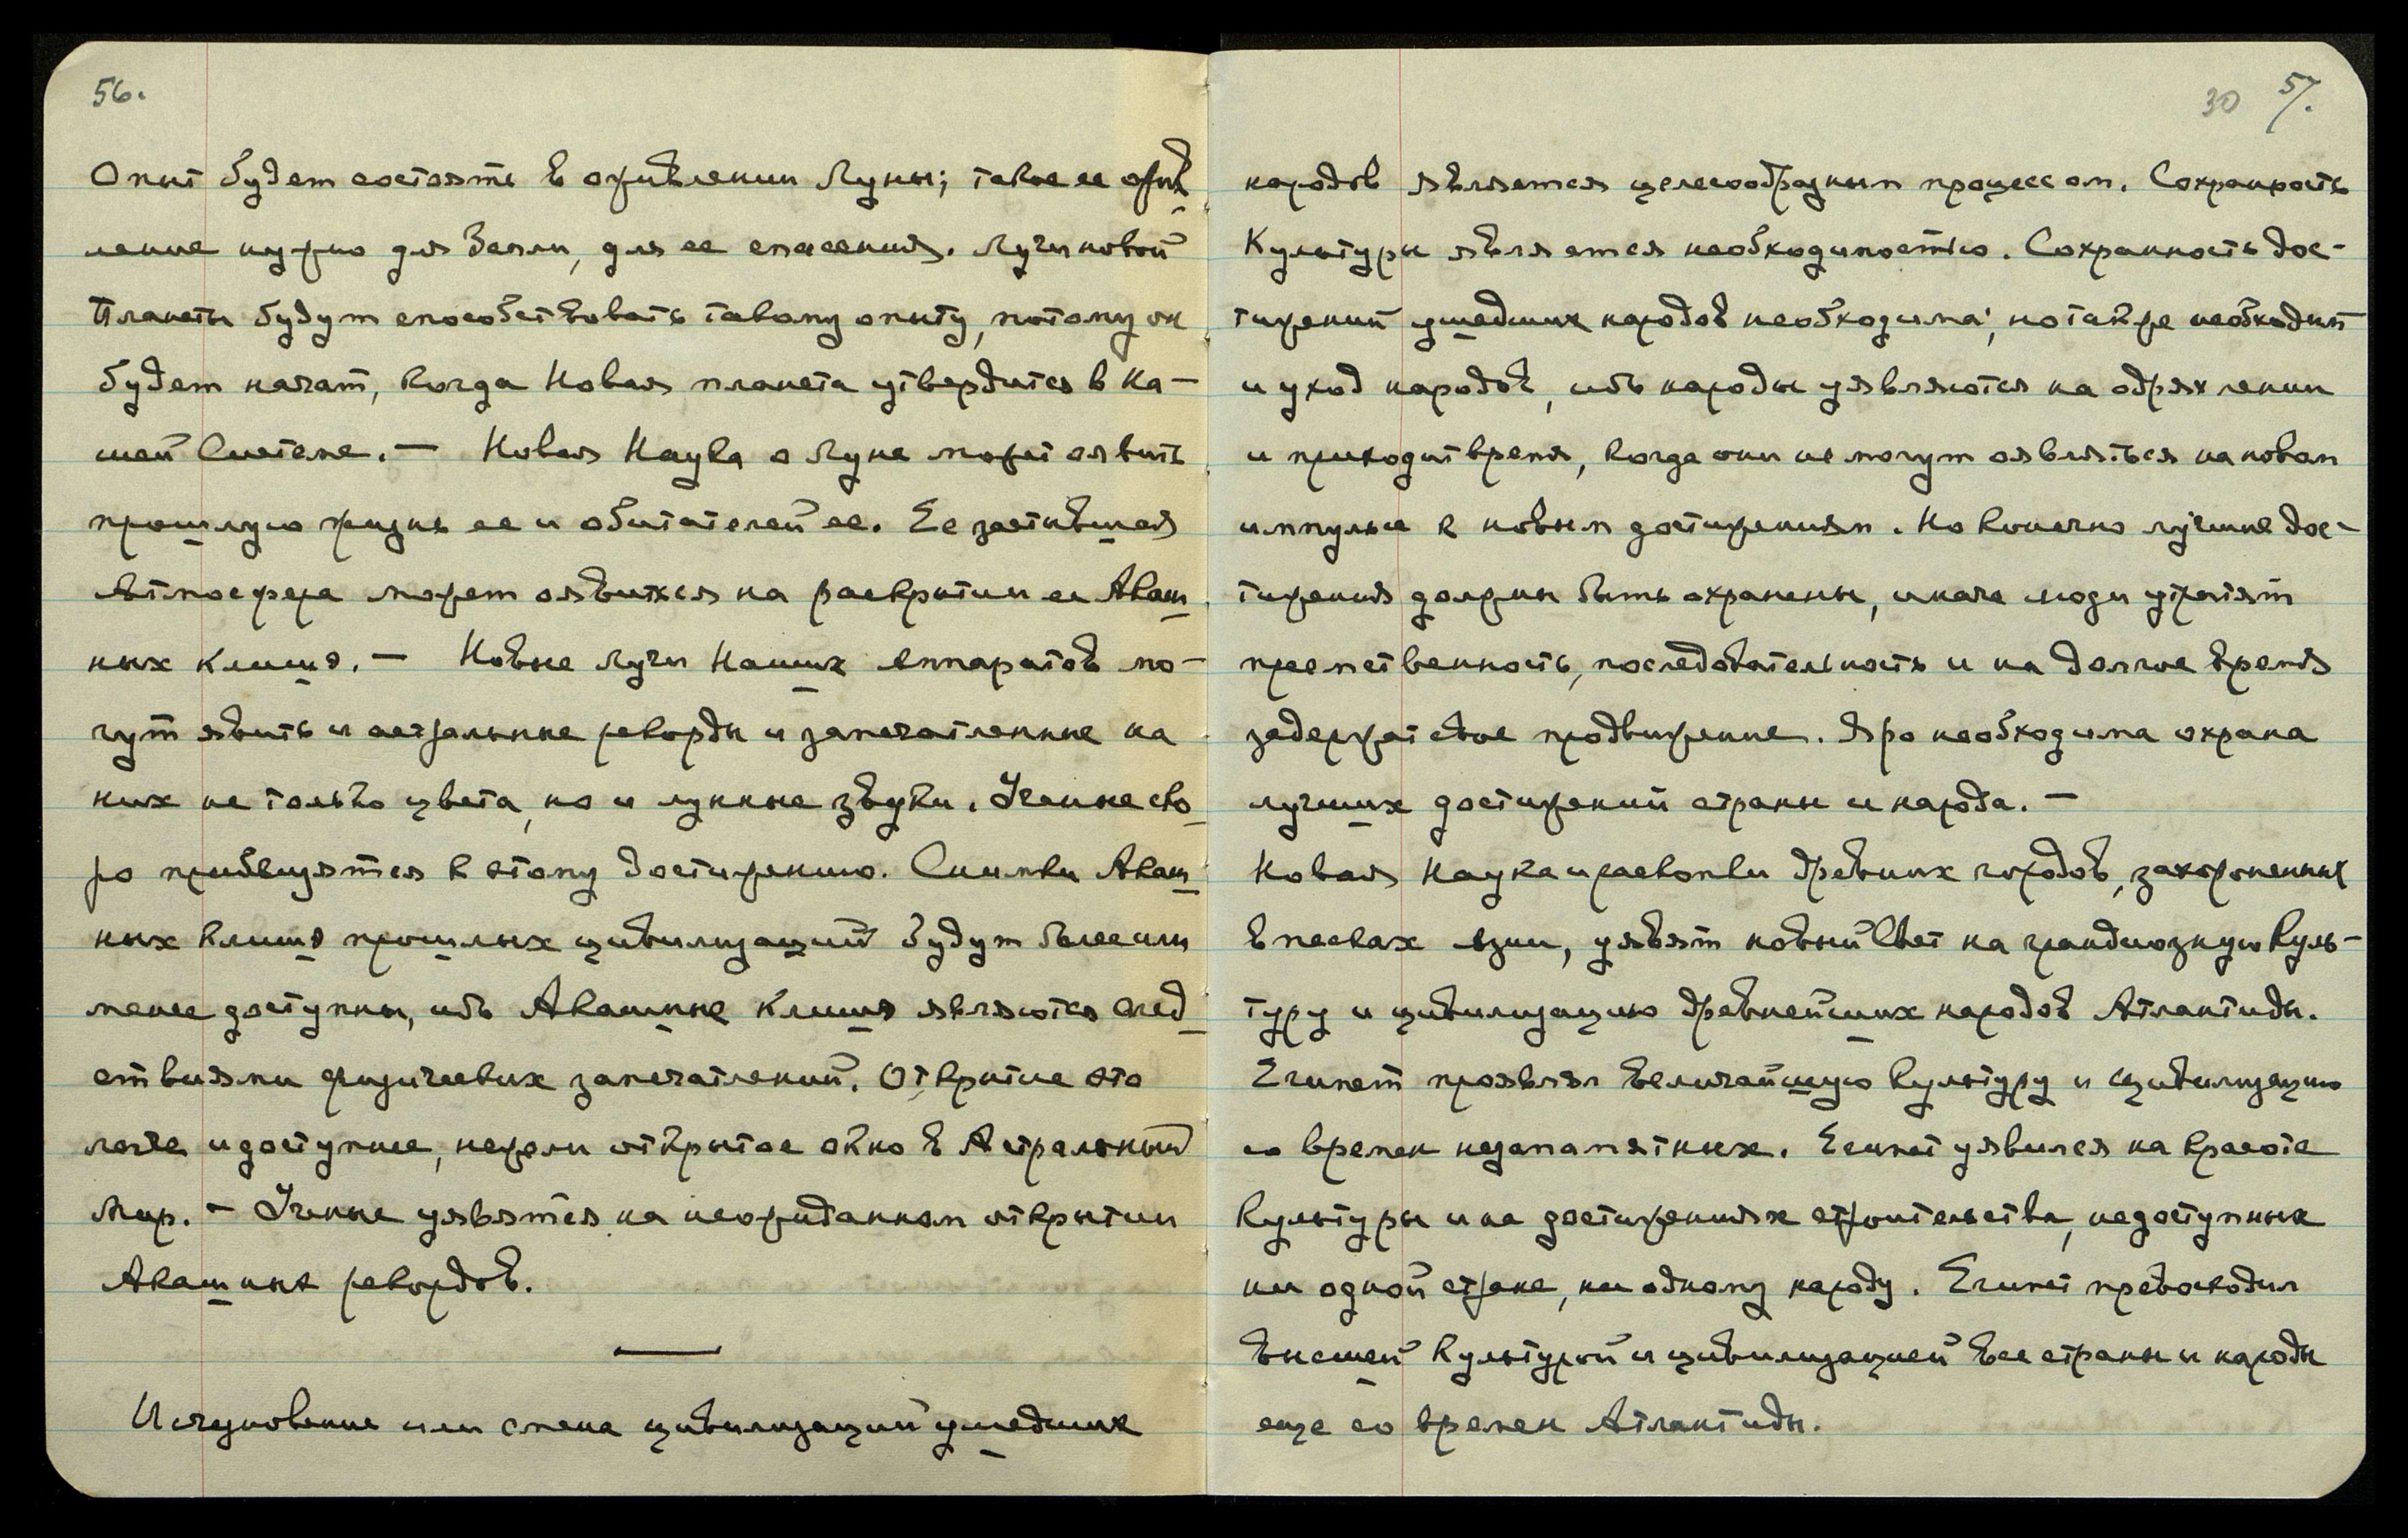 56.
Опыт будет состоять в оживлении Луны; такое ее ожив
ление нужно для Земли, для ее спасения. Лучи новой
Планеты будут способствовать такому опыту, потому он
будет начат, когда Новая планета утвердится в на-
шей Системе. — Новая Наука о Луне может явить
прошлую жизнь ее и обитателей ее. Ее застывшая
атмосфера может оявиться на раскрытии ее Акаш
ных клишэ. — Новые лучи Наших аппаратов мо-
гут явить и астральные рекорды и запечатленные на
них не только цвета, но и лунные звуки. Ученые ско
ро приблизятся к этому достижению. Снимки Акаш
ных клишэ прошлых цивилизаций будут более или
менее доступны, ибо Акашные клишэ являются след
ствиями физических запечатлений. Открытие это
легче и доступнее, нежели открытое окно в Астральный
Мир. — Ученые уявятся на неожиданном открытии
Акашных рекордов.
Исчезновение или смена цивилизаций ушедших
30 57.
народов является целесообразным процессом. Сохранность
Культуры является необходимостью. Сохранность дос-
тижений ушедших народов необходима, но также необходим
и уход народов, ибо народы уявляются на одряхлении
и приходит время, когда они не могут оявляться на новом
импульсе к новым достижениям. Но конечно лучшие дос-
тижения должны быть охранены, иначе люди утратят
преемственность, последовательность и на долгое время
задержат свое продвижение. Яро необходима охрана
лучших достижений страны и народа. —
Новая Наука и раскопки древних городов, захороненных
в песках Азии, уявят новый Свет на грандиозную куль-
туру и цивилизацию древнейших народов Атлантиды.
Египет проявлял величайшую культуру и цивилизацию
со времен незапамятных. Египет уявился на красоте
культуры и на достижениях строительства, недоступных
ни одной стране, ни одному народу. Египет превосходил
высшей культурой и цивилизацией все страны и народы
еще со времен Атлантиды.